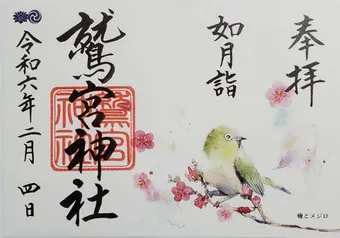 奉拝
如月詣
鷲宮神社
令和六年二月四日
梅とメジロ